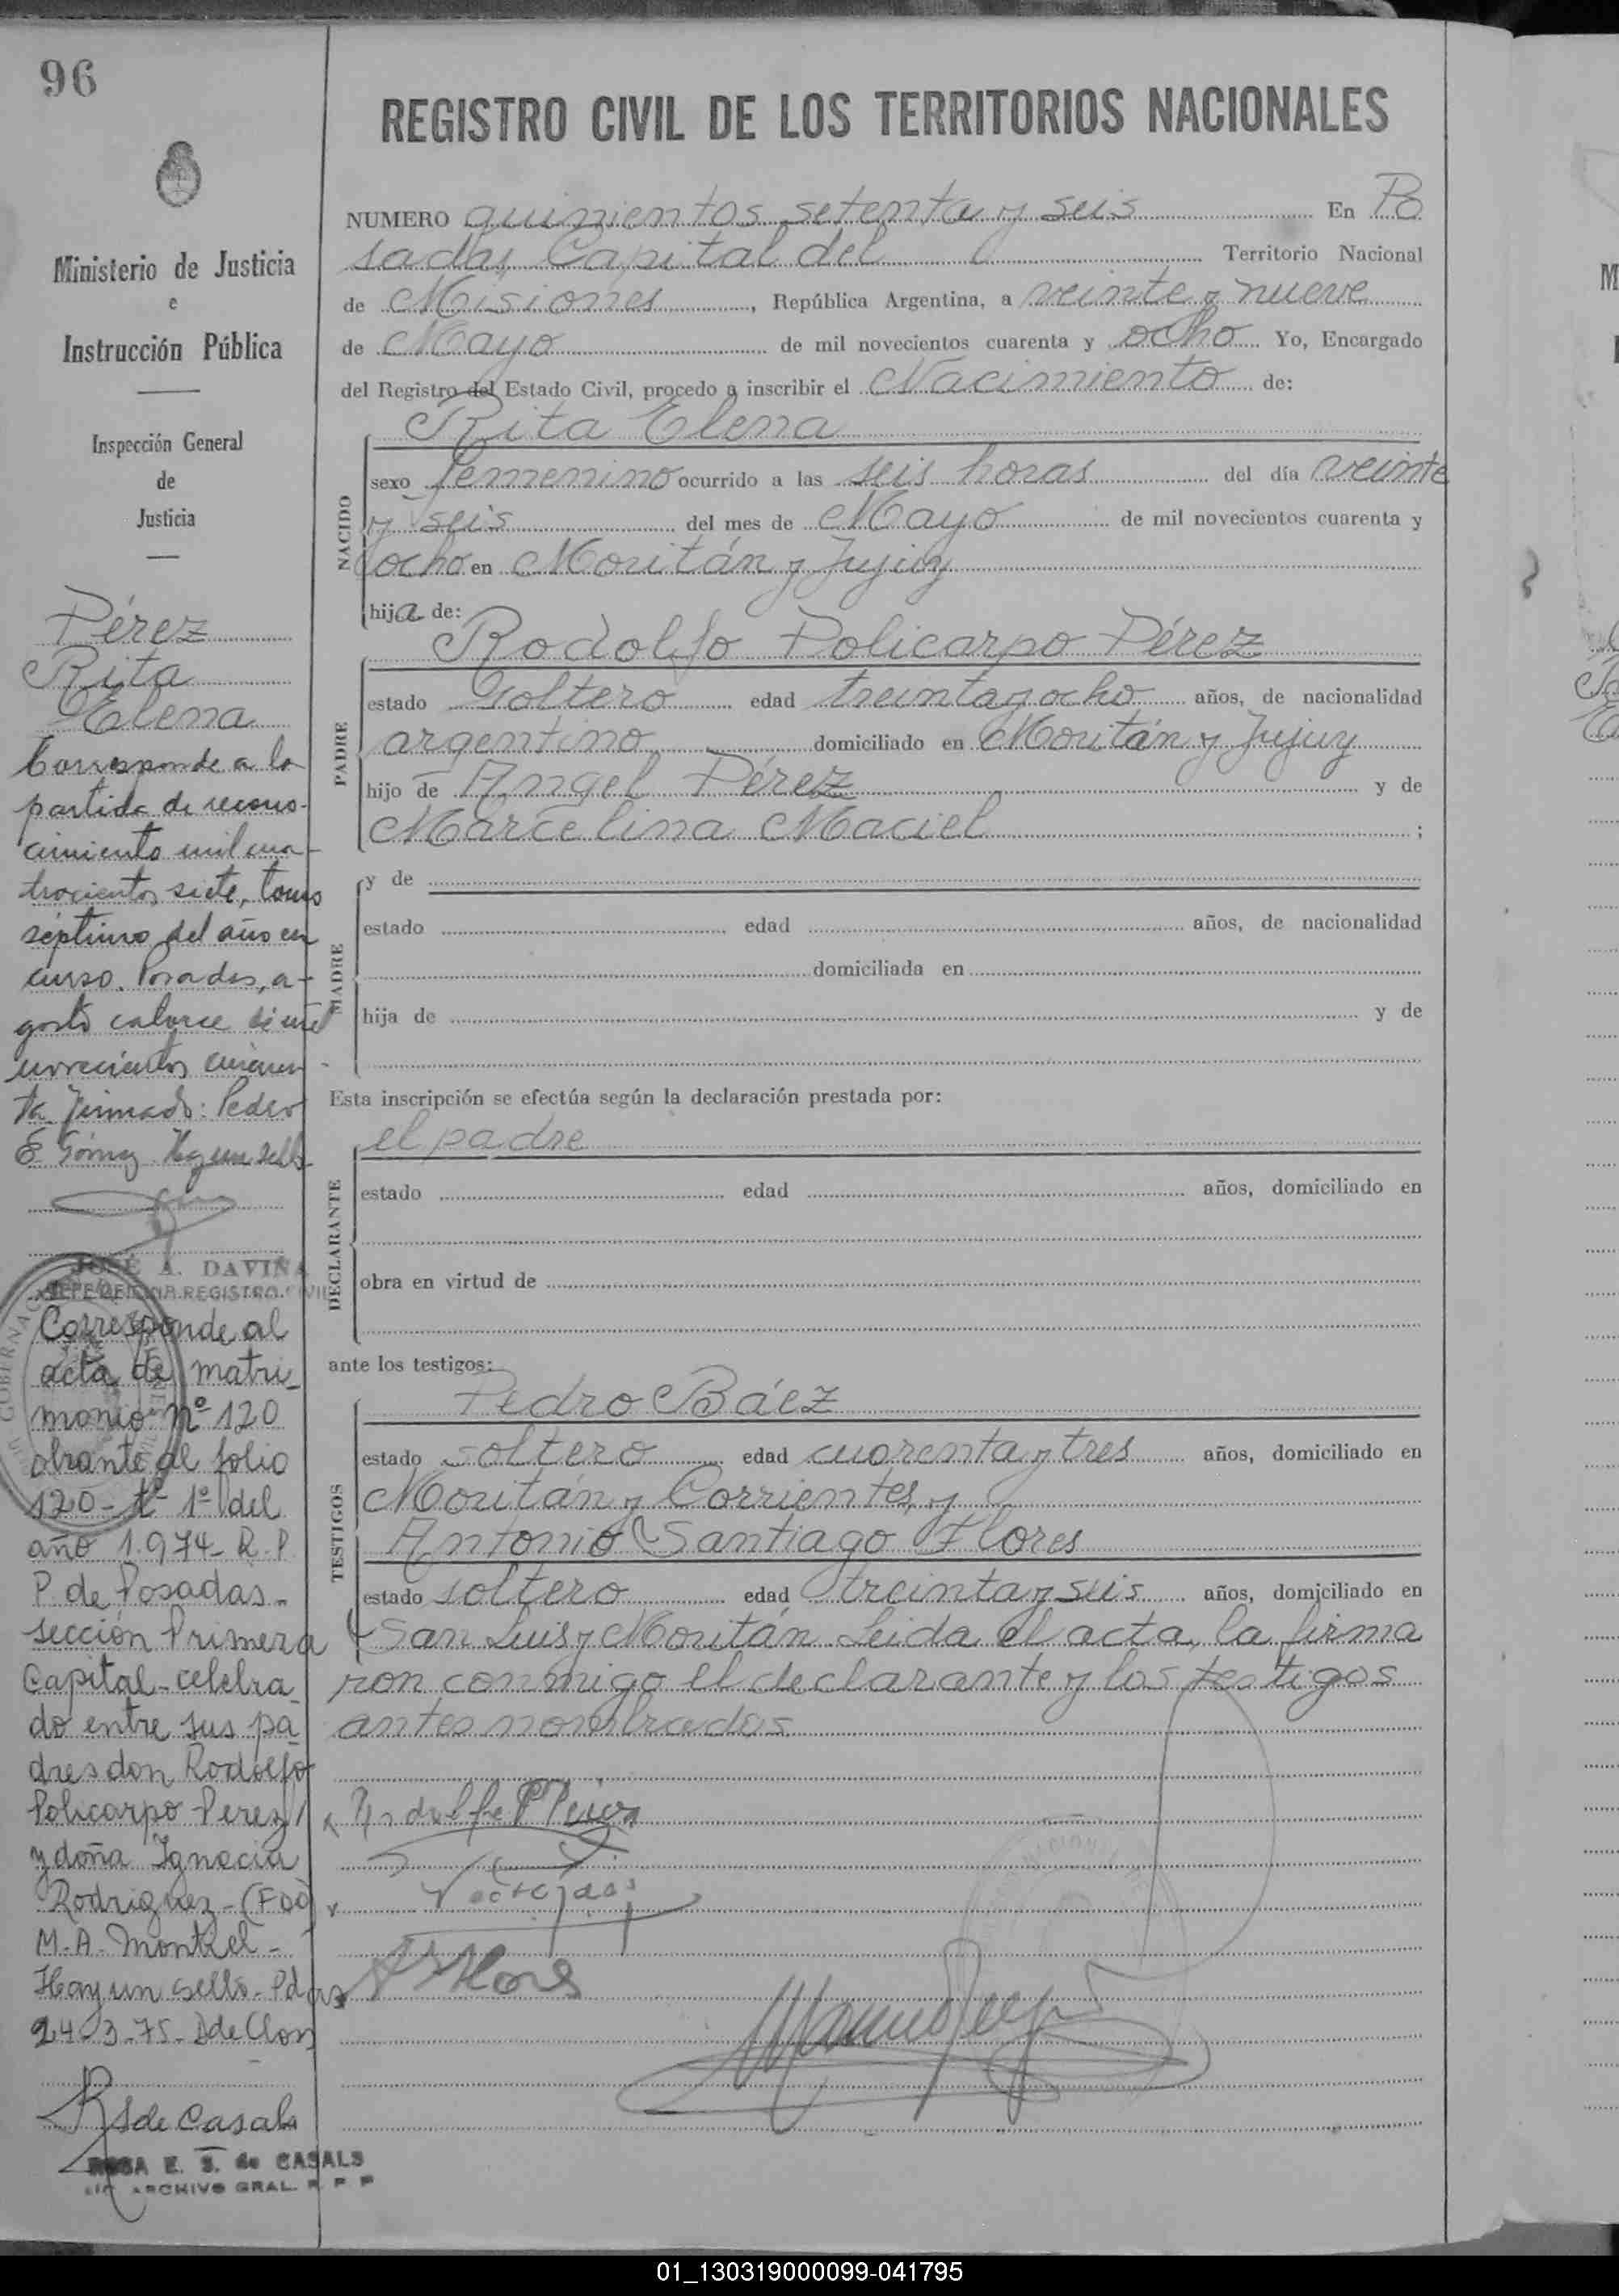 96
REGISTRO CIVIL DE LOS TERRITORIOS NACIONALES
Ministerio de Justicia
e
Instrucción Pública
Inspección General
de
Justicia
Pérez
Rita
Elena
Corresponde a la
partida de recono-
cimiento mil cua-
trocientos siete, tomo
séptimo del año en
curso. Posadas, a-
gosto catorce de mil
novecientos cincuen-
ta. Firmado: Pedro
E Gómez. Hay un sello
JOSÉ A. DAVIÑA
JEFE OFICINA REGISTRO CIVIL
Corresponde al
acta de matri-
monio nº 120
obrante al folio
120 - tº 1º del
año 1.974 - R. P.
P. de Posadas -
sección Primera
Capital - celebra-
do entre sus pa
dres don Rodolfo
Policarpo Perez
y doña Ignacia
Rodriguez - (Fdo)
M. A. Montiel -
Hay un sello - Pdas
24-3-75 -
R S de Casals
ROSA E. S. de CASALS
ARCHIVO GRAL. R P P
NUMERO quinientos setenta y seis En Po
sadas, Capital del Territorio Nacional
de Misiones, República Argentina, a veinte y nueve
de Mayo de mil novecientos cuarenta y ocho Yo, Encargado
del Registro del Estado Civil, procedo a inscribir el Nacimiento de:
Rita Elena
NACIDO
sexo femenino ocurrido a las seis horas del día veinte
y seis del mes de Mayo de mil novecientos cuarenta y
ocho en Moritán y Jujuy
hija de:
Rodolfo Policarpo Pérez
PADRE
estado Soltero edad treinta y ocho años, de nacionalidad
argentino domiciliado en Moritán y Jujuy
hijo de Angel Pérez y de
Marcelina Maciel ;
MADRE
y de
estado edad años, de nacionalidad
domiciliada en
hija de y de
Esta inscripción se efectúa según la declaración prestada por:
el padre
DECLARANTE
estado edad años, domiciliado en
obra en virtud de
ante los testigos:
Pedro Báez
TESTIGOS
estado soltero edad cuarenta y tres años, domiciliado en
Moritán y Corrientes, y
Antonio Santiago Flores
estado soltero edad treinta y seis años, domiciliado en
San Luis y Moritán. Leida el acta, la firma
ron conmigo el declarante y los testigos
antes nombrados
Rodolfo P Pérez
A S Flores
01_130319000099-041795